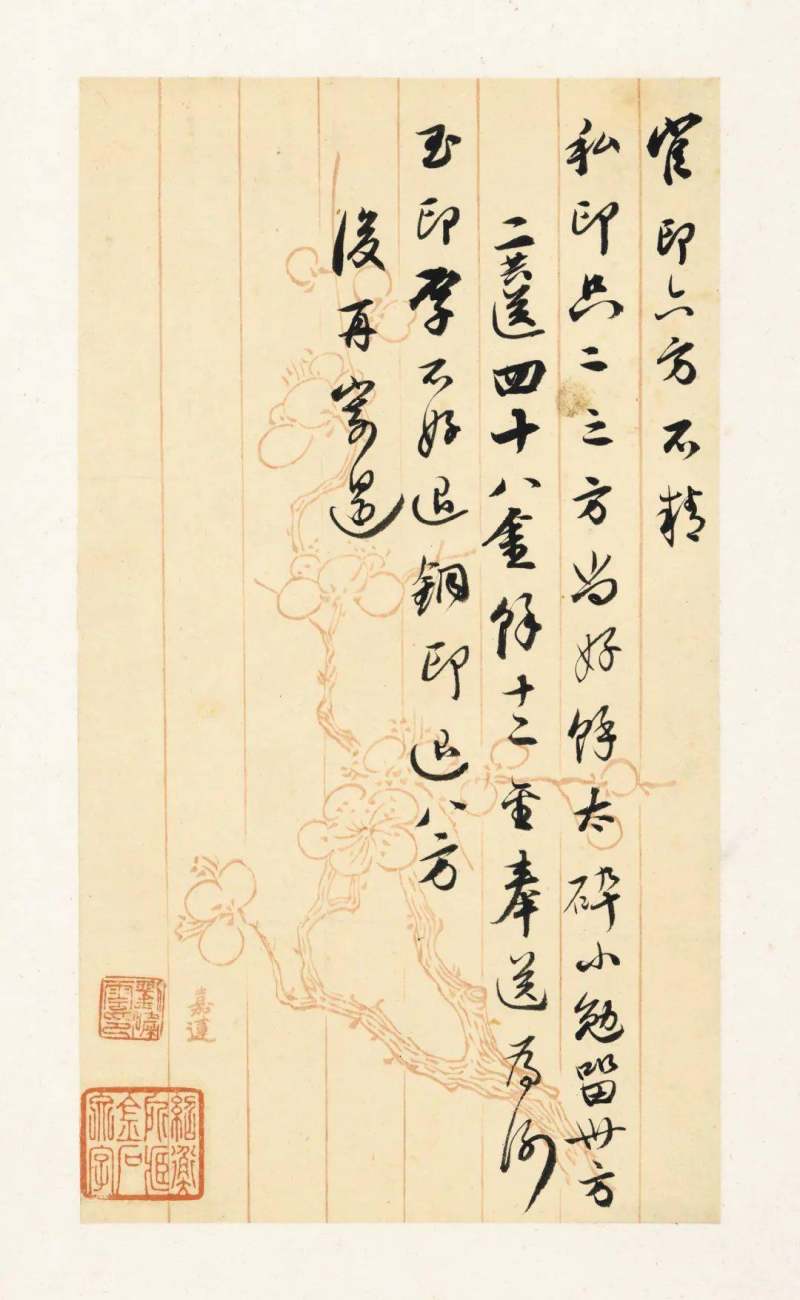 官印六方不精
私印只二三方尚好餘太碎小勉留卅方
二共送四十八金餘十二金奉送為例
玉印孝不好退銅印退八方
後再寄還
嘉蓮